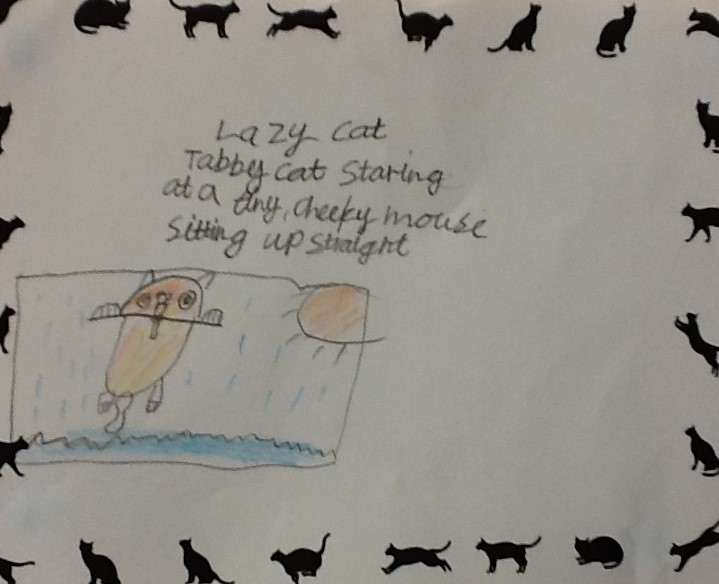 Lazy cat
Tabby cat staring
at a tiny, cheeky mouse
sitting up straight